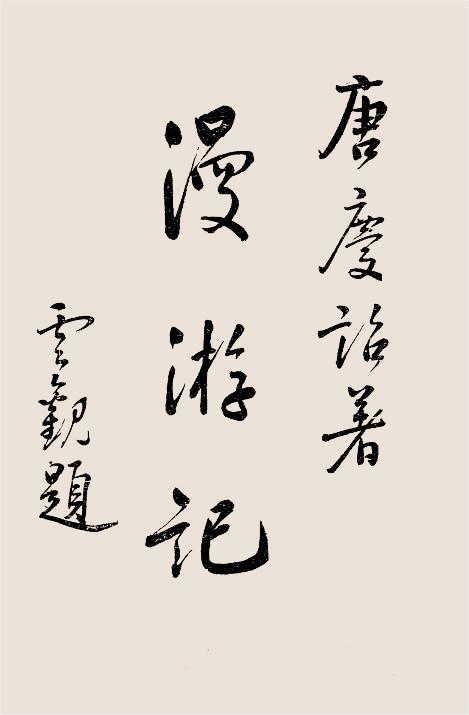 唐慶詒著
漫游記
雲觀題